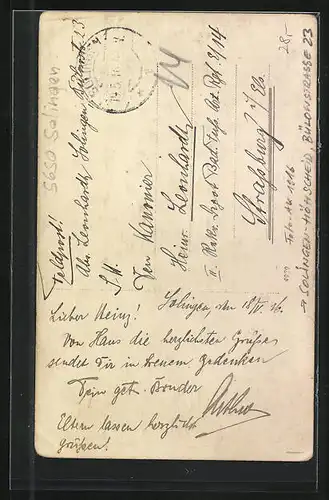 Feldpost!
Abs. Leonhardt, Solingen, Bülowstr. 23
S. H.
Den Kanonier
Heinr. Leonhardt
II. Rekr. Depot Bad. Fuß. Art. Rgt. 14
Straßburg i/Els.
Solingen, den 18/V. 16.
Lieber Heinz!
Von Haus die herzlichsten Grüße
sendet Dir in treuem Gedenken
Dein get. Bruder
Arthur
Eltern lassen herzlich
grüßen!
5650 Solingen
28,-
Foto-AK 1916
→ SOLINGEN-HÖHSCHEID, BÜLOWSTRASSE 23